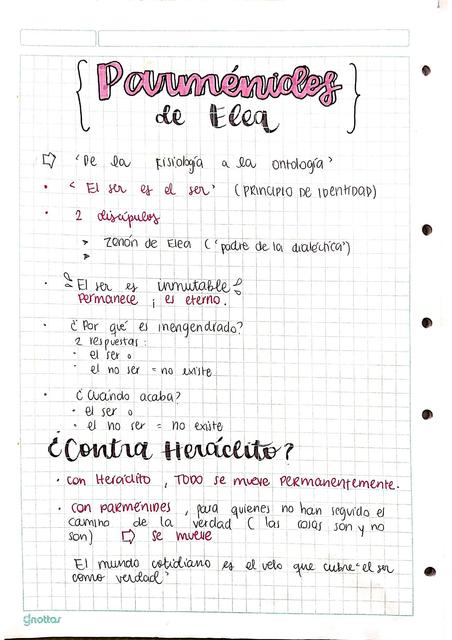 { Parménides }
de Elea
⇨ 'De la fisiología a la ontología'
• 'El ser es el ser' (PRINCIPIO DE IDENTIDAD)
• 2 discípulos
➤ Zenón de Elea ('padre de la dialéctica')
➤
• El ser es inmutable
Permanece ¡ es eterno.
• ¿Por qué es inengendrado?
2 respuestas:
• el ser o
• el no ser = no existe
• ¿Cuándo acaba?
• el ser o
• el no ser = no existe
¿Contra Heráclito?
• con Heráclito, TODO se mueve PERMANENTEMENTE.
• con PARMÉNIDES, para quienes no han seguido el
camino de la verdad (las cosas son y no
son) ⇨ se mueve
El mundo cotidiano es el velo que cubre "el ser
como verdad"
gnottas